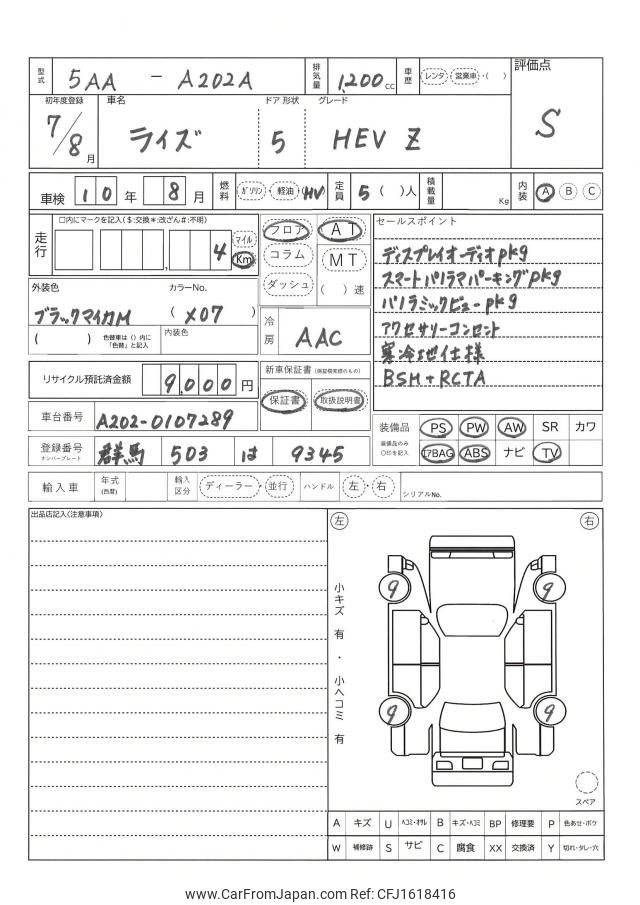 型式 5AA - A202A 排気量 1,200 CC 車歴 レンタ・営業車・( ) 評価点
初年度登録 車名 ドア形状 グレード
7/8月 ライズ 5 HEV Z S
車検 10年 8月 燃料 ガソリン・軽油・HV 定員 5( )人 積載量 Kg 内装 A B C
走行 □内にマークを記入($:交換*:改ざん#:不明)
4 マイル Km
フロア AT
コラム MT
ダッシュ ( )速
セールスポイント
ディスプレイオーディオpkg
スマートパノラマパーキングpkg
パノラミックビューpkg
アクセサリーコンセント
寒冷地仕様
BSM+RCTA
外装色 カラーNo.
ブラックマイカM ( X07 )
( ) 色替車は( )内に「色替」と記入 内装色
冷房 AAC
リサイクル預託済金額 9,000円
新車保証書(保証継承可能のもの)
保証書 取扱説明書
車台番号 A202-0107289
装備品 PS PW AW SR カワ
装備品のみ○印を記入 エアBAG ABS ナビ TV
登録番号 ナンバープレート 群馬 503 は 9345
輸入車 年式(西暦) 輸入区分 ディーラー・並行 ハンドル 左・右 シリアルNo.
出品店記入(注意事項)
左 右
小キズ有・小ヘコミ有
9 9
9 9
スペア
A キズ U ヘコミ・オサレ B キズ・ヘコミ BP 修理要 P 色あせ・ボケ
W 補修跡 S サビ C 腐食 XX 交換済 Y 切れ・タレ・穴
www.CarFromJapan.com Ref: CFJ1618416